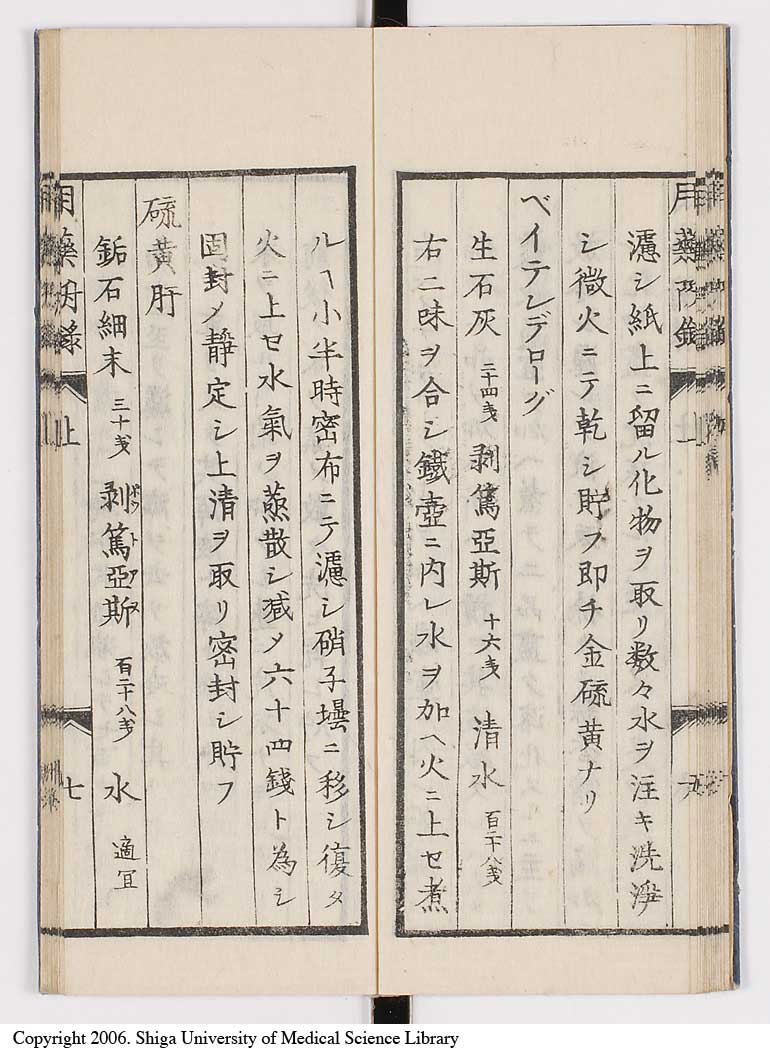 濾シ紙上ニ留ル化物ヲ取リ数々水ヲ注キ洗淨
シ微火ニテ乾シ貯フ即チ金硫黄ナリ
ベイテレデローグ
生石灰 二十四戔 剥篤亞斯 十六戔 清水 百二十八戔
右二味ヲ合シ鐵壺ニ内レ水ヲ加ヘ火ニ上セ煮
ルヿ小半時密布ニテ濾シ硝子壜ニ移シ復タ
火ニ上セ水氣ヲ蒸散シ减メ六十四錢ト為シ
固封メ静定シ上清ヲ取リ密封シ貯フ
硫黄肝
鉐石細末 三十戔 剥篤亞斯 ボットアス 百二十八戔 水 適宜
上
七
Copyright 2006. Shiga University of Medical Science Library